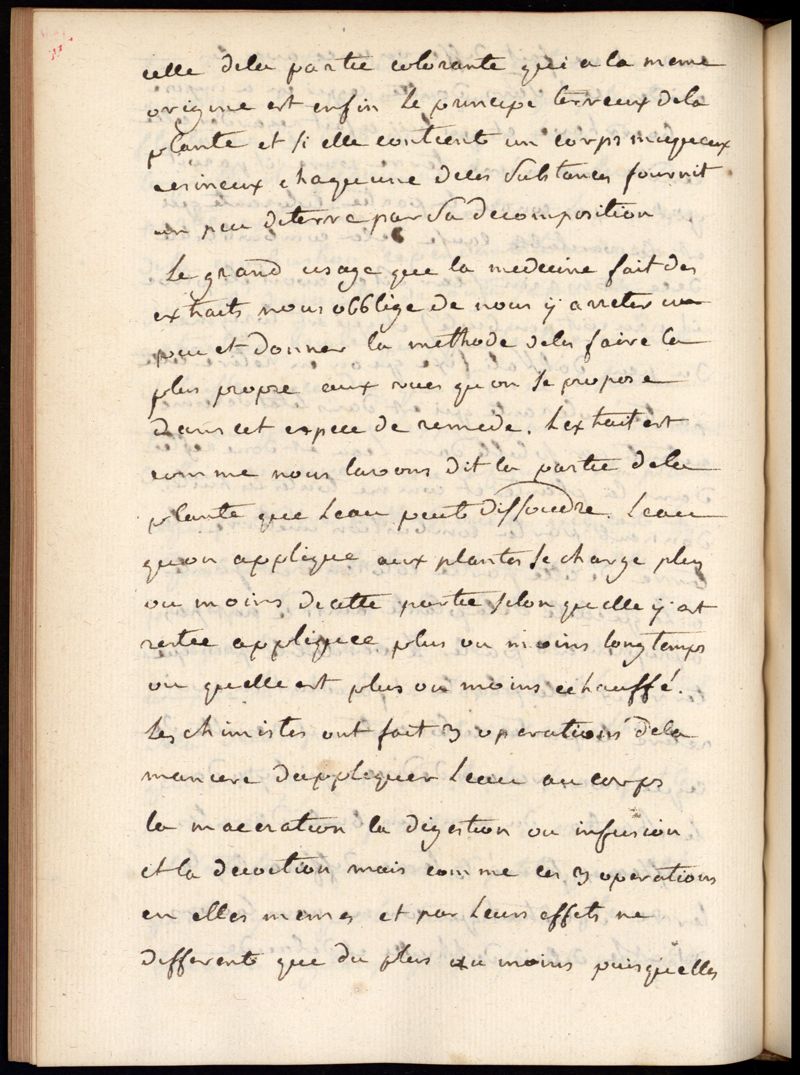 celle dela partie colorante qui a la meme
origine est enfin le principe terreux dela
plante et si elle contient un corps muqueux
resineux chaque une deces substances fournit
un peu deterre par sa decomposition
Le grand usage que la medecine fait des
extraits nous obblige de nous ÿ arreter un
peu et donner la methode deles faire la
plus propre aux vues quon se propose
dans cet espece de remede. Lextrait est
comme nous lavons dit la partie dela
plante que leau peut dissoudre. Leau
quon applique aux plantes se charge plus
ou moins decette partie selon quelle ÿ est
restée appliquee plus ou moins longtemps
ou quelle est plus ou moins echauffé.
Les chimistes ont fait 3 operations dela
maniere dappliquer leau au corps
la maceration la digestion ou infusion
et la decoction mais comme ces 3 operations
en elles memes et par leurs effets ne
different que du plus au moins puisquelles